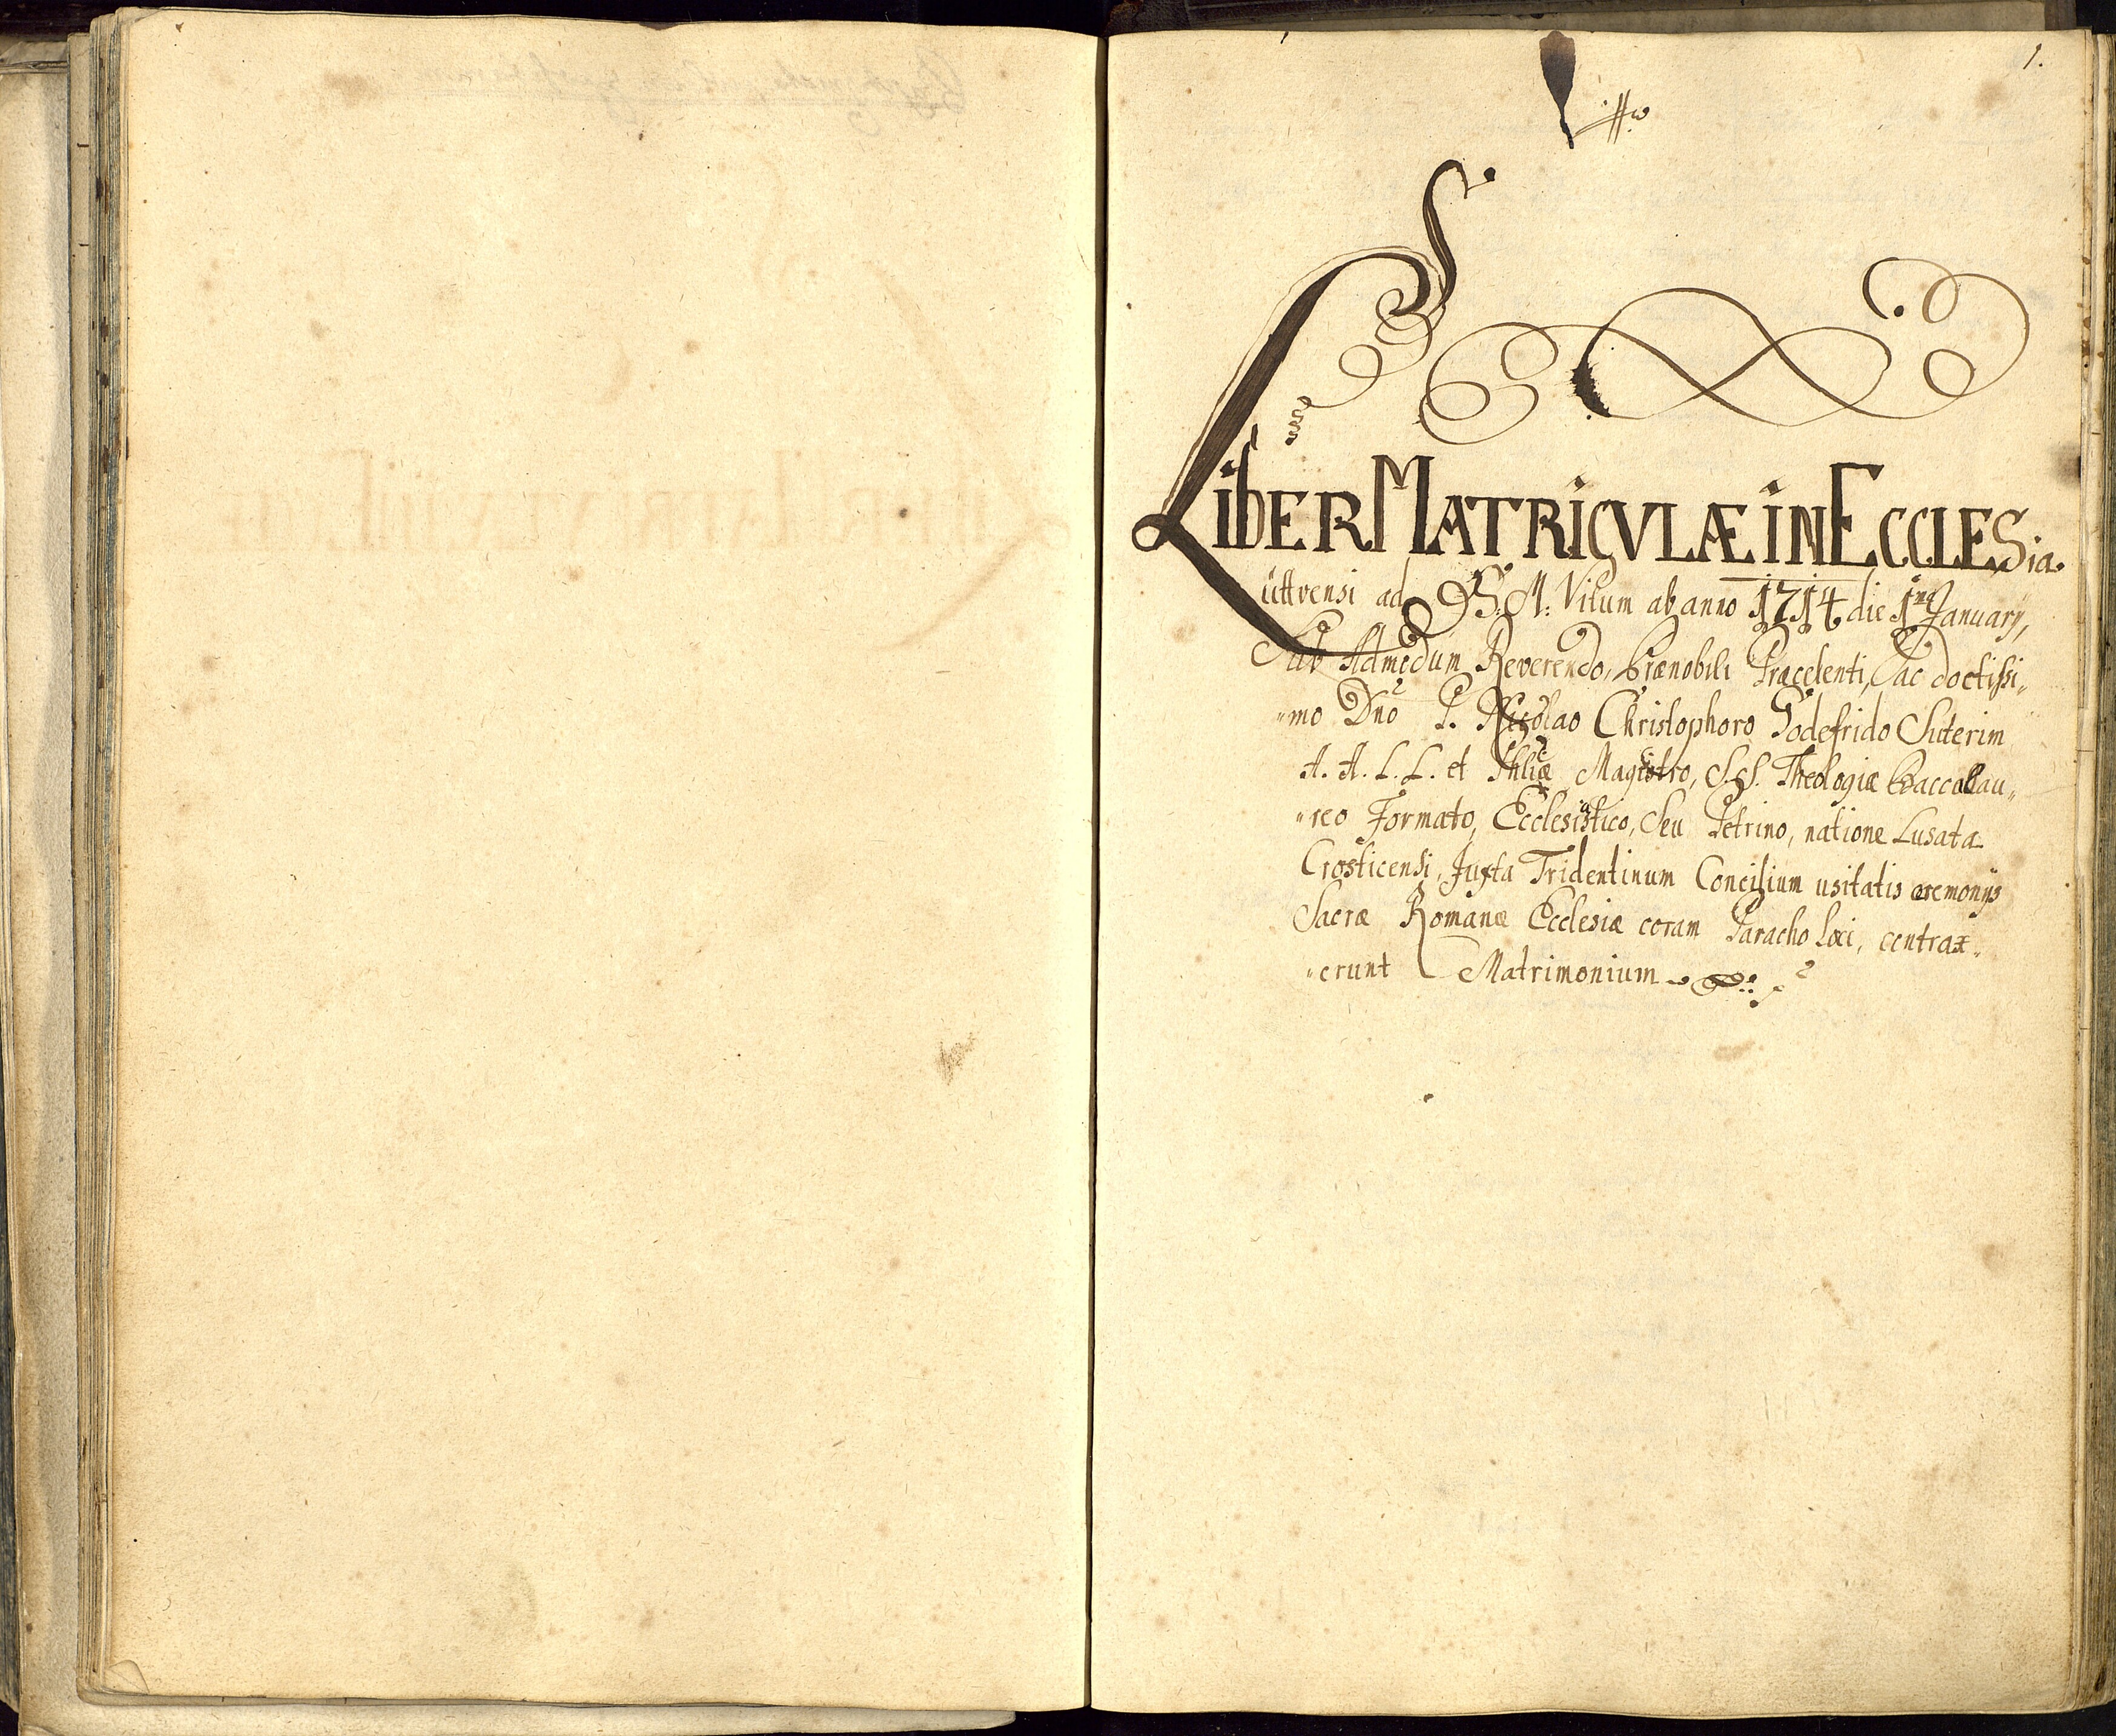 1.
LiBER MATRICVLÆ iN ECCLESia
üttvensi ad D: S: M: Vitum ab anno 1714 die 1ma January,
Sub Admodum Reverendo, Prænobili Præcelenti, ac doctissi„
„mo Dno P. Nicolao Christophoro Godefrido Suterim
A. A. L. L. et Phliæ Magistro, S.S. Theologiæ Baccalau„
„reo Formato, Ecclesiastico, Seu Petrino, natione Lusata
Crosticensi, Juxta Tridentinum Concilium usitatis ceremonijs
Sacræ Romanæ Ecclesiæ coram Paracho Loci, contrax„
„erunt Matrimonium